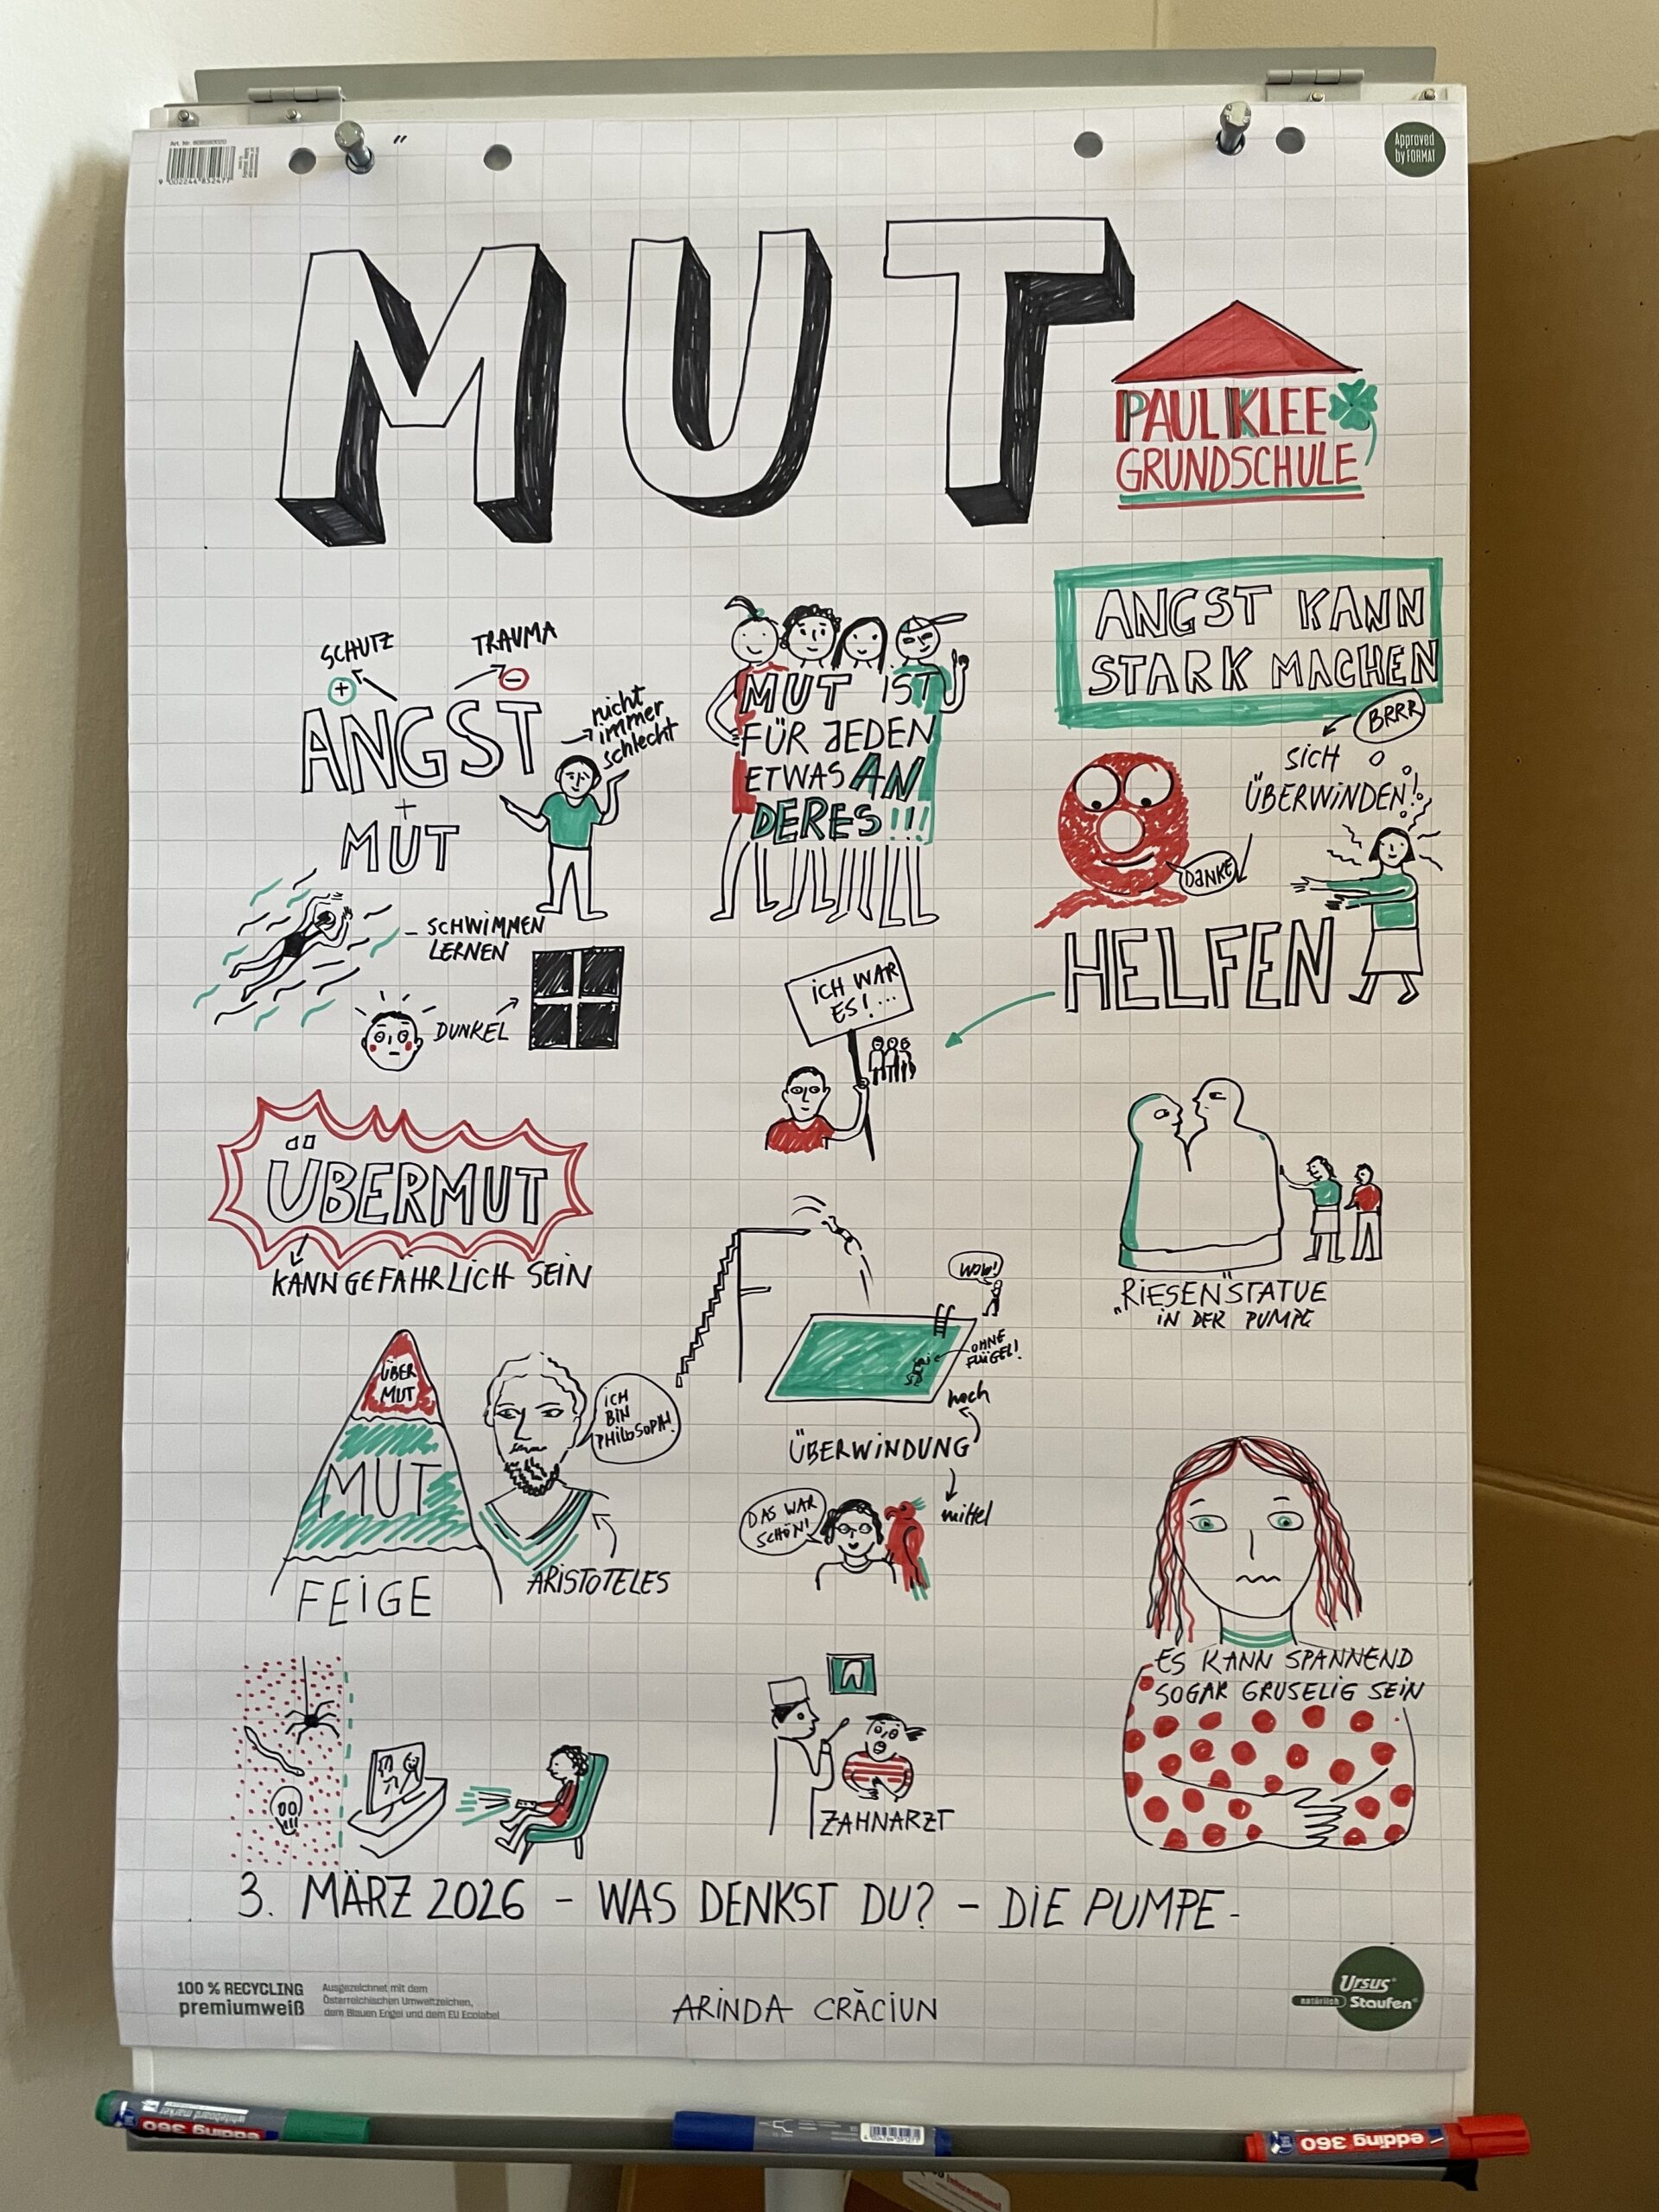 Approved
by FORMAT
MUT
PAUL KLEE
GRUNDSCHULE
ANGST KANN
STARK MACHEN
BRRR
SICH
ÜBERWINDEN!
DANKE
HELFEN
SCHUTZ
TRAUMA
+
-
ANGST
nicht
immer
schlecht
+
MUT
SCHWIMMEN
LERNEN
DUNKEL
MUT IST
FÜR JEDEN
ETWAS AN
DERES!!!
ICH WAR
ES!...
ÜBERMUT
KANN GEFÄHRLICH SEIN
"RIESEN"STATUE
IN DER PUMPE
WOW!
OHNE
FLÜGEL!
hoch
ÜBERWINDUNG
mittel
DAS WAR
SCHÖN!
ÜBER
MUT
MUT
FEIGE
ICH
BIN
PHILOSOPH!
ARISTOTELES
ZAHNARZT
ES KANN SPANNEND
SOGAR GRUSELIG SEIN
3. MÄRZ 2026 - WAS DENKST DU? - DIE PUMPE -
100 % RECYCLING
premiumweiß
Ausgezeichnet mit dem
Österreichischen Umweltzeichen,
dem Blauen Engel und dem EU Ecolabel
ARINDA CRĂCIUN
Ursus
natürlich Staufen
whiteboard marker
edding 360
edding 360